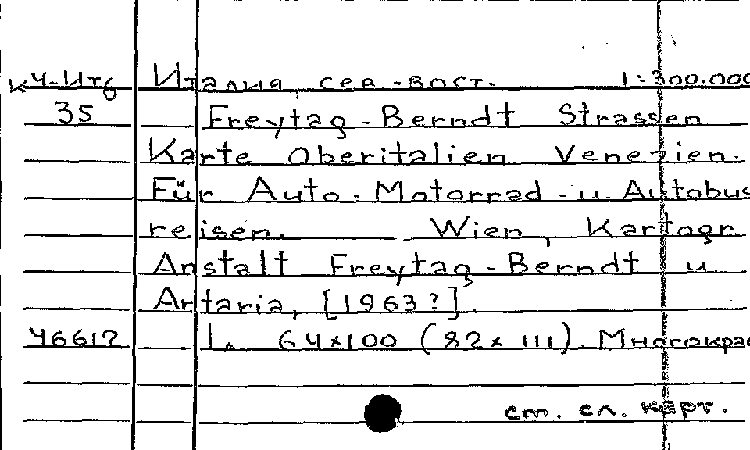 К4-Ит6 Италия, сев.-вост. 1:300.000
35 Freytag-Berndt Strassen
Karte Oberitalien Venezien.
Für Auto-Motorrad-u. Autobus
reisen. Wien, Kartogr.
Anstalt Freytag-Berndt u.
Artaria, [1963?].
46617 1 л. 64x100 (82x111). Многокрас
см. сл. карт.